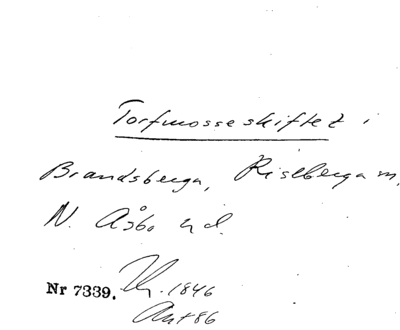 Torfmosseskiftet i
Brandsberga, Riseberga m,
N. Åsbo hd.
Nr 7339. 1846
Ant 86